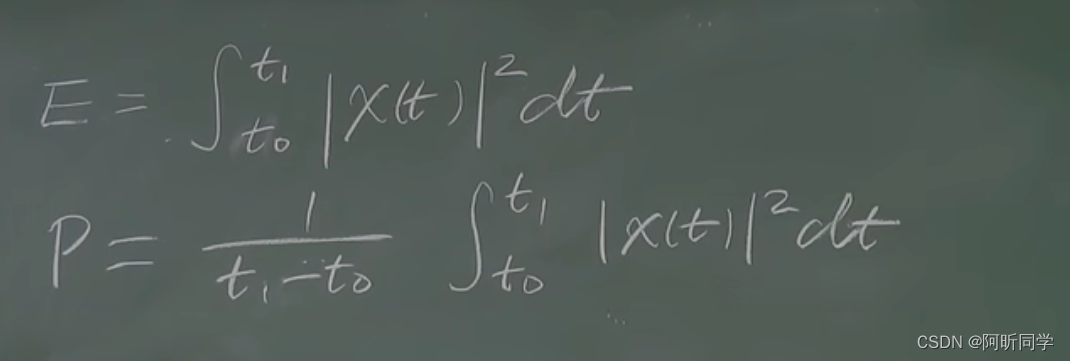 E = ∫_{t₀}^{t₁} |x(t)|² dt
P = 1/(t₁-t₀) ∫_{t₀}^{t₁} |x(t)|² dt
CSDN @阿昕同学